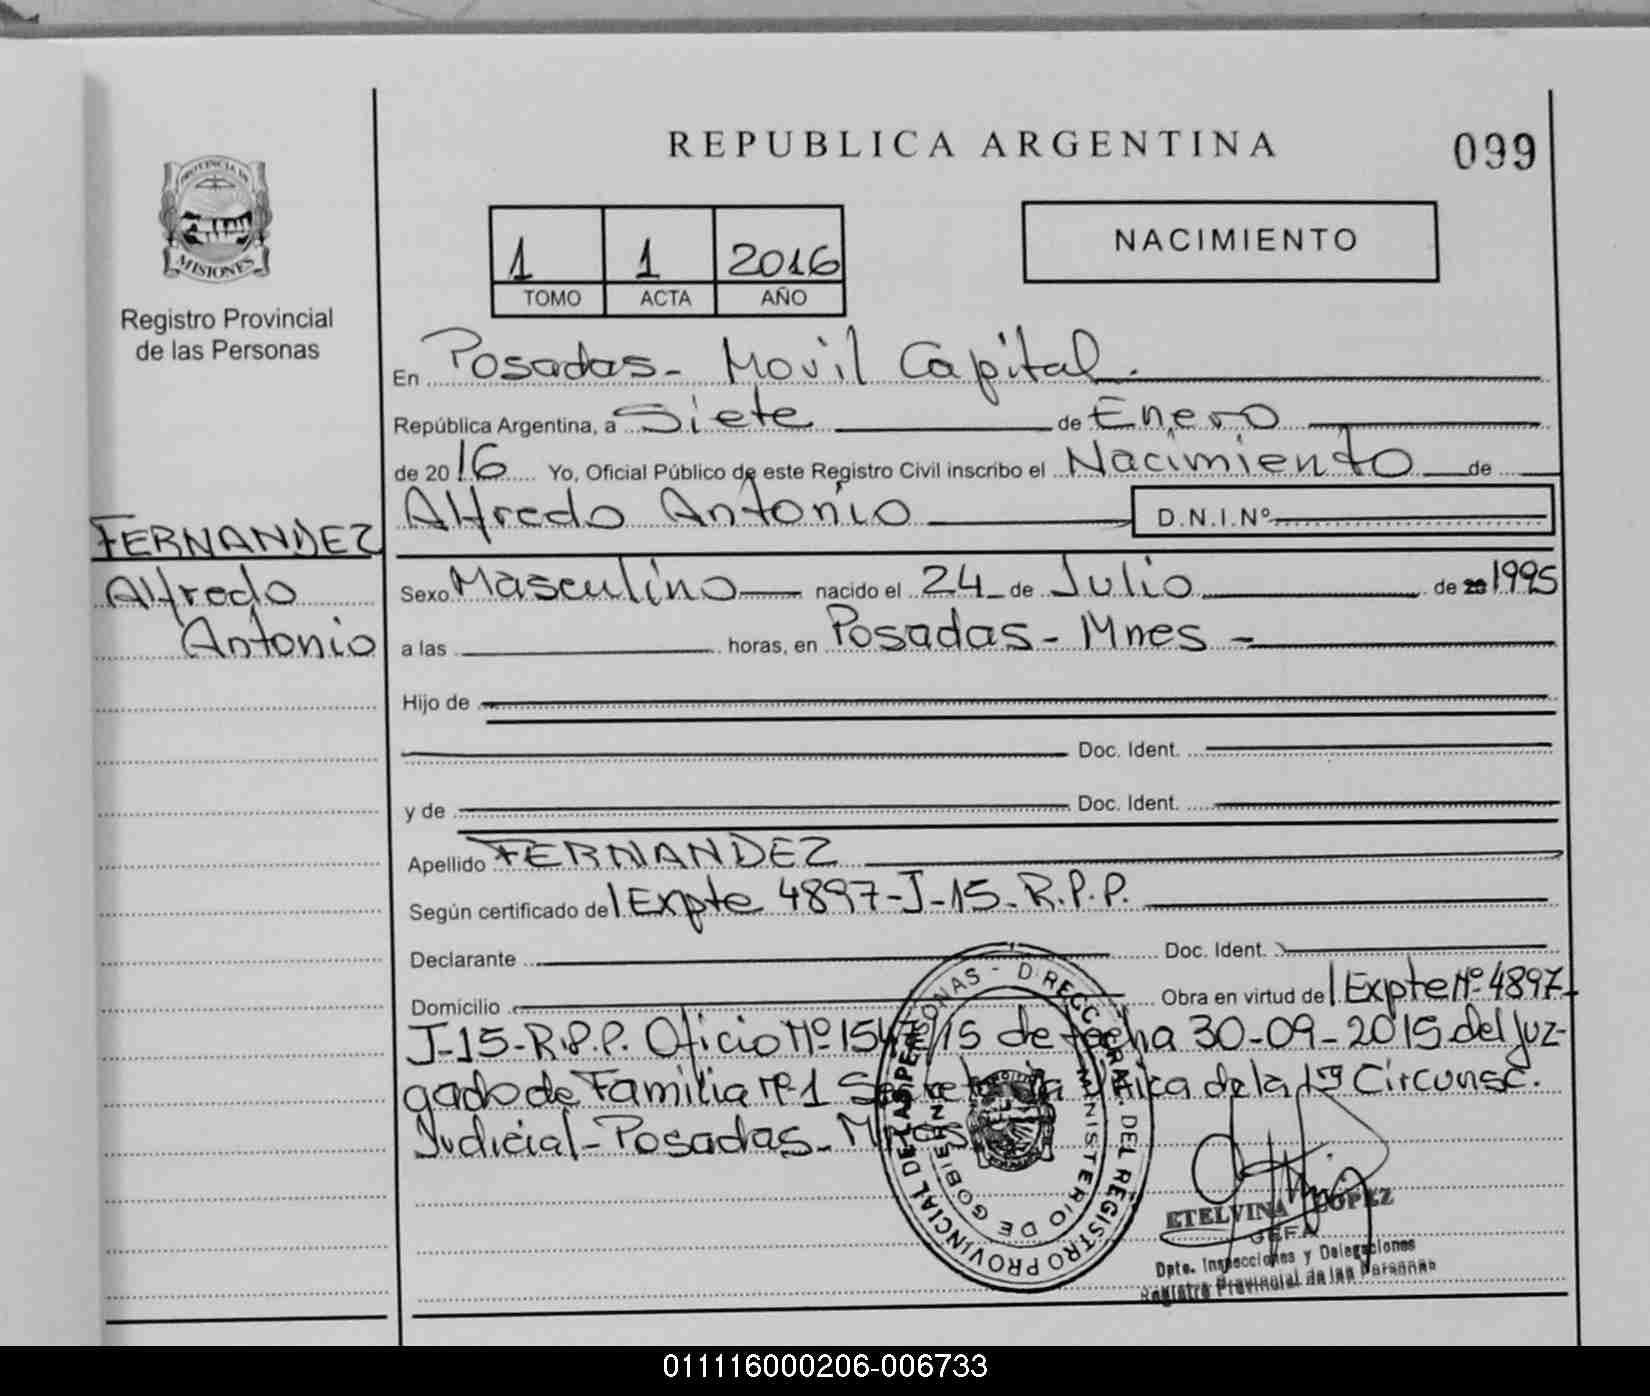 REPUBLICA ARGENTINA
099
PROVINCIA DE
MISIONES
Registro Provincial
de las Personas
1 1 2016
TOMO ACTA AÑO
NACIMIENTO
En Posadas - Movil Capital.
República Argentina, a Siete de Enero
de 2016 Yo, Oficial Público de este Registro Civil inscribo el Nacimiento de
Alfredo Antonio D.N.I.Nº
FERNANDEZ
Alfredo
Antonio
Sexo Masculino nacido el 24 de Julio de 1995
a las horas, en Posadas - Mnes -
Hijo de
Doc. Ident.
y de Doc. Ident.
Apellido FERNANDEZ
Según certificado del Expte 4897-J-15-R.P.P.
Declarante Doc. Ident.
Domicilio Obra en virtud del Expte Nº 4897-
J-15-R.P.P. Oficio Nº 1547/15 de fecha 30-09-2015 del Juz-
gado de Familia nº 1 Secretaria Unica de la 1ra Circunsc.
Judicial - Posadas - Mnes
DIRECC. GRAL. DEL REGISTRO PROVINCIAL DE LAS PERSONAS -
MINISTERIO DE GOBIERNO
ETELVINA LOPEZ
JEFA
Dpto. Inspecciones y Delegaciones
Registro Provincial de las Personas
011116000206-006733